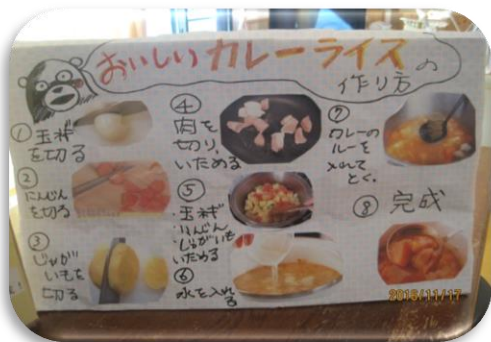 おいしいカレーライスの
作り方
①玉ネギ
を切る
②にんじん
を切る
③じゃが
いもを
切る
④
肉を
切り、
いためる
⑤
・玉ネギ
・にんじん
・じゃがいも
いためる
⑥
水を入れ
る
⑦
カレーの
ルーを
入れて
とく。
⑧ 完成
2018/11/17